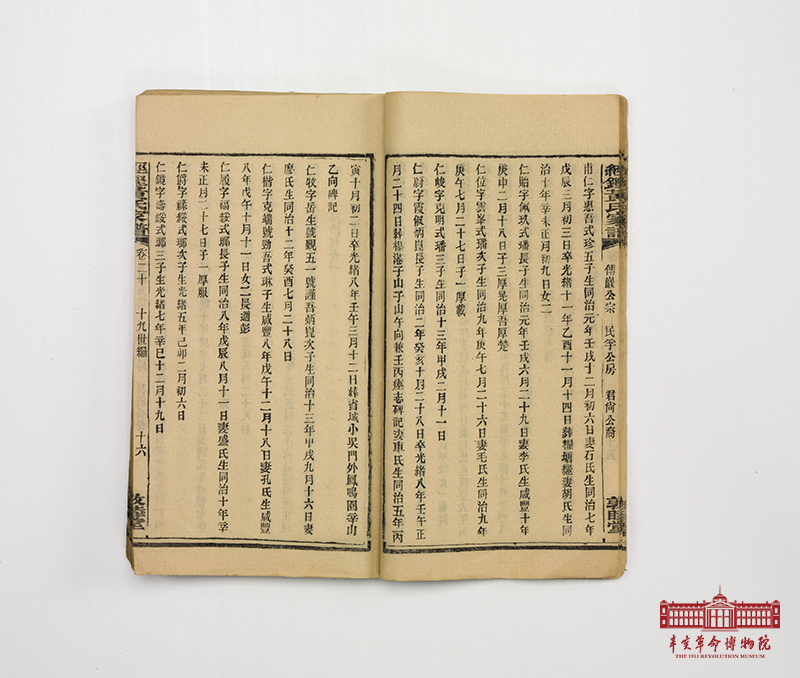 傅巖公宗 民字公房 君尙公裔
南仁字惠吾式珍五子生同治元年壬戌十二月初六日妻石氏生同治七年
戊辰三月初三日卒光緒十一年乙酉十一月十四日葬糧塘繼妻胡氏生同
治十年辛未正月初九日女二
仁貽字佩玖式璠長子生同治元年壬戌六月二十九日妻李氏生咸豐十年
庚申二月十八日子三厚晃厚吾厚焚
仁位字雲峯式璠次子生同治九年庚午七月二十六日妻毛氏生同治九年
庚午七月二十七日子一厚載
仁峻字克明式璠三子生同治十三年甲戌二月十一日
仁尉字霞佩炳崑長子生同治二年癸亥十月二十八日卒光緒八年壬午正
月二十四日葬楊港子山子山午向兼壬丙塟志碑記妻車氏生同治五年丙
寅十月初二日卒光緒八年壬午三月十二日葬省城小吳門外鳳鳴園辛山
乙向碑記
仁牧字岳生號觀五一號謹吾炳崑次子生同治十三年甲戌九月十六日妻
廖氏生同治十二年癸酉七月二十八日
仁楷字克端號勁吾式琳子生咸豐八年戊午十二月十八日妻孔氏生咸豐
八年戊午十月十一日女二長適彭
仁履字福綏式瑯長子生同治八年戊辰八月十一日妻盛氏生同治十年辛
未正月二十七日子一厚服
仁爵字祿綏式瑯次子生光緒五年己卯二月初六日
仁鏡字壽綏式瑯三子生光緒七年辛巳十二月十九日
卷二十 十九世編 十六
辛亥革命博物院
THE 1911 REVOLUTION MUSEUM